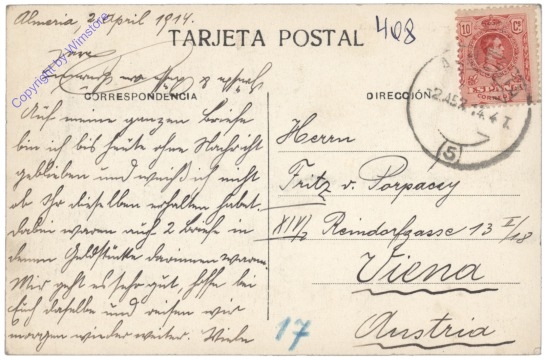 Almeria 2. April 1914.
408
TARJETA POSTAL
10 Cs
CORRESPONDENCIA
DIRECCIÓN
Auf meine ganzen Briefe
bin ich bis heute ohne Nachricht
geblieben und weiß ich nicht
ob Ihr dieselben erhalten habet.
dabei waren auch 2 Briefe in
denen Geldstücke darinnen waren.
Mir geht es sehr gut, hoffe bei
Euch dasselbe und reisen wir
morgen wieder weiter. Viele
Herrn
Fritz v. Porpacey
XIV/2 Reindorfgasse 13 I/18
Viena
Austria
17
(5)
Copyright by Wimstore